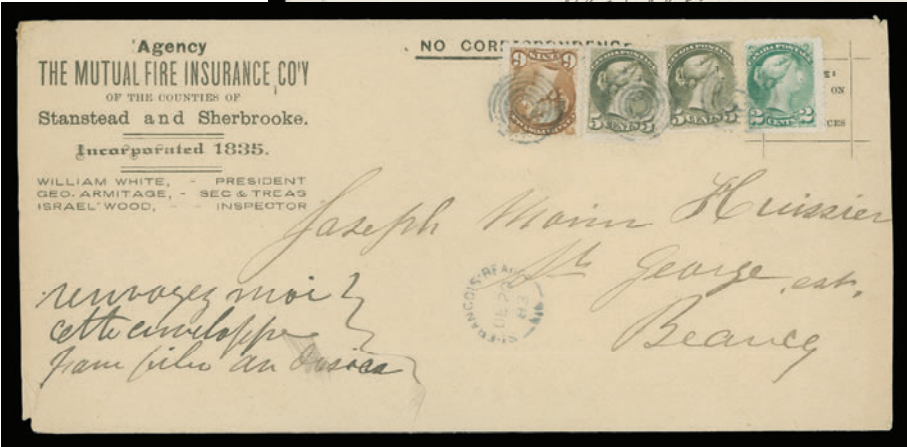 Agency
THE MUTUAL FIRE INSURANCE CO'Y
OF THE COUNTIES OF
Stanstead and Sherbrooke.
Incorporated 1835.
WILLIAM WHITE, - PRESIDENT
GEO. ARMITAGE, - SEC & TREAS
ISRAEL WOOD, - - INSPECTOR
NO CORRESPONDENCE
6 NINE 6
CANADA POSTAGE
5 CENTS 5
CANADA POSTAGE
5 CENTS 5
CANADA POSTAGE
2 CENTS 2
ON
CES
Joseph Morin Huissier
St George est,
Beauce
ST FRANCOIS-BEAUCE
renvoyez moi
cette enveloppe